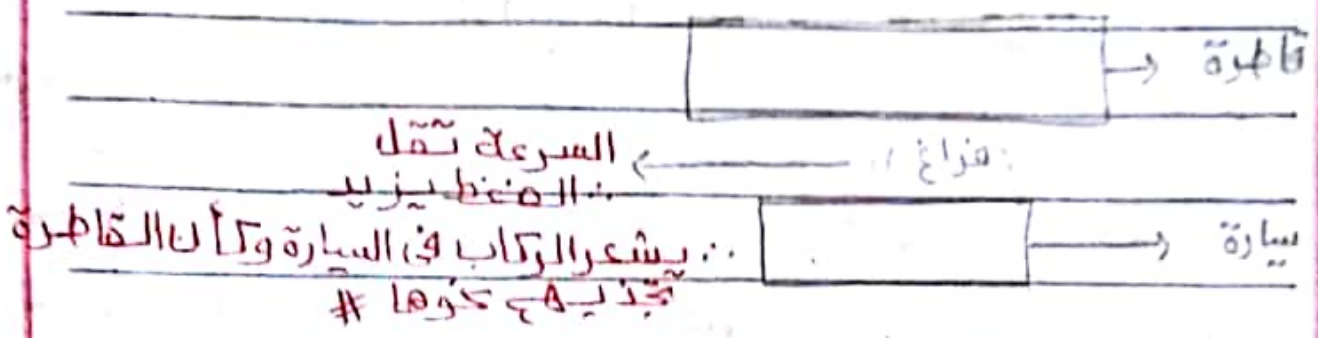 قاطرة
فراغ
السرعة تقل
∴ الضغط يزيد
سيارة
∴ يشعر الركاب في السيارة وكأن القاطرة
تجذبهم نحوها #